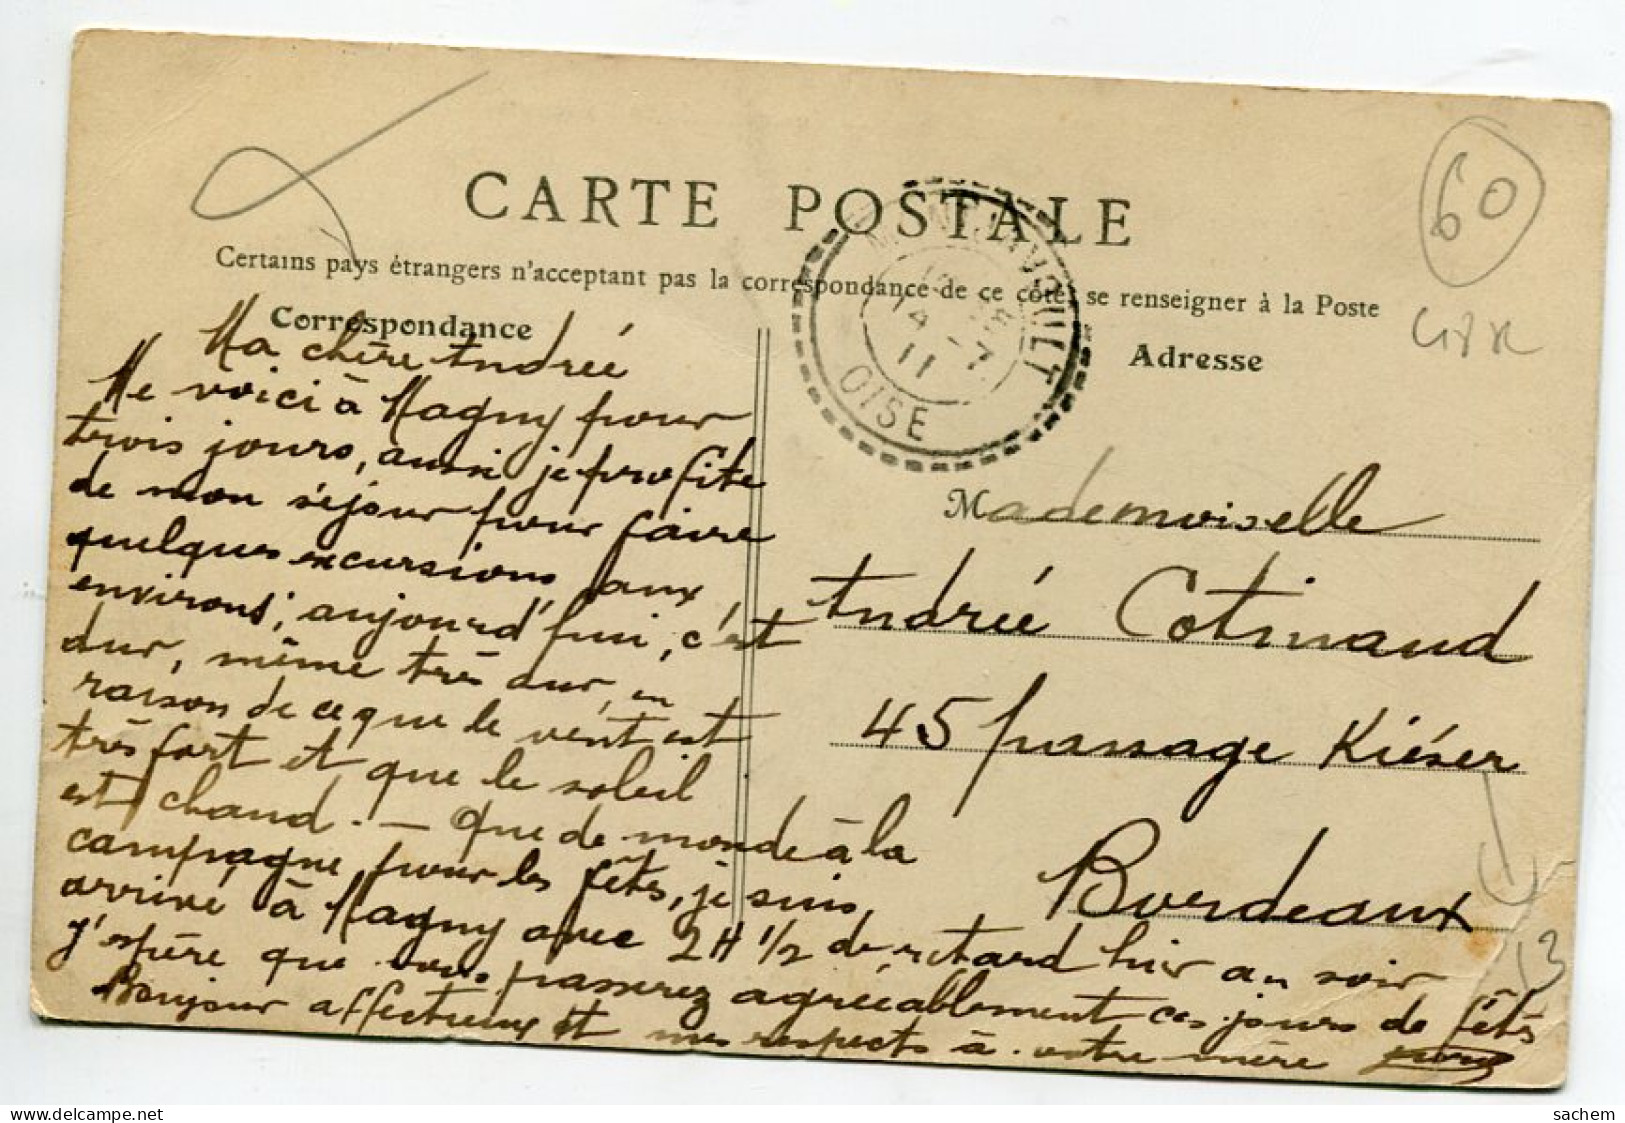 60
CARTE POSTALE
Certains pays étrangers n'acceptant pas la correspondance de ce côté, se renseigner à la Poste
Correspondance
Adresse
MONTJAVOULT
14 -7
11
OISE
Ma chère Andrée
Me voici à Magny pour
trois jours, aussi je profite
de mon séjour pour faire
quelques excursions aux
environs; aujourd'hui, c'est
dur, même très dur, en
raison de ce que le vent est
très fort et que le soleil
est chaud. — Que de monde à la
campagne pour les fêtes, je suis
arrivé à Magny avec 2H 1/2 de retard hier au soir
J'espère que vous passerez agréablement ces jours de fêtes
Bonjour affectueux et mes respects à votre mère
Mademoiselle
Andrée Cotinaud
45 passage Kiéser
Bordeaux
13
sachem